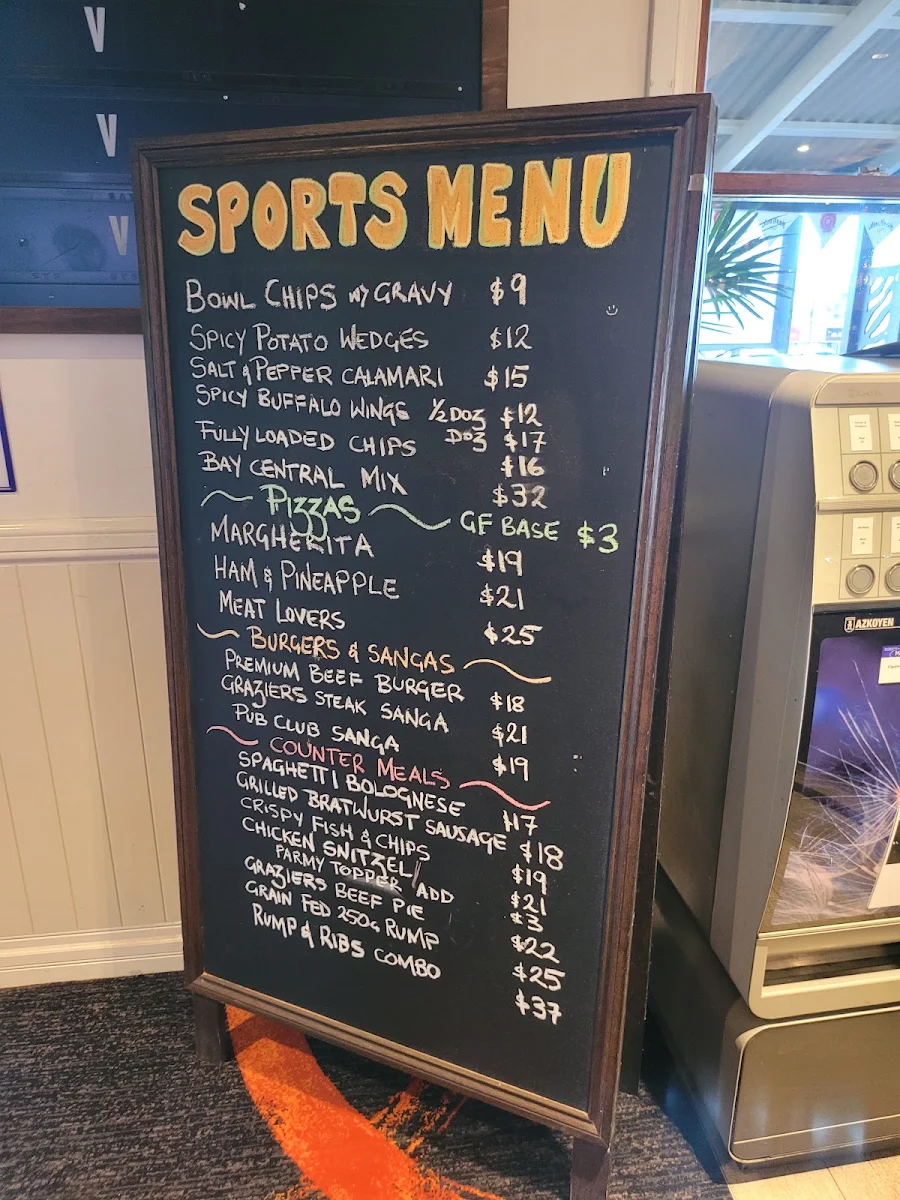 V
V
V
SPORTS MENU
BOWL CHIPS W/ GRAVY $9
SPICY POTATO WEDGES $12
SALT & PEPPER CALAMARI $15
SPICY BUFFALO WINGS 1/2 DOZ $12
DOZ $17
FULLY LOADED CHIPS $16
BAY CENTRAL MIX $32
PIZZAS GF BASE $3
MARGHERITA $19
HAM & PINEAPPLE $21
MEAT LOVERS $25
BURGERS & SANGAS
PREMIUM BEEF BURGER $18
GRAZIERS STEAK SANGA $21
PUB CLUB SANGA $19
COUNTER MEALS
SPAGHETTI BOLOGNESE $17
GRILLED BRATWURST SAUSAGE $18
CRISPY FISH & CHIPS $19
CHICKEN SNITZEL $21
PARMY TOPPER ADD $3
GRAZIERS BEEF PIE $22
GRAIN FED 250G RUMP $25
RUMP & RIBS COMBO $37
AZKOYEN